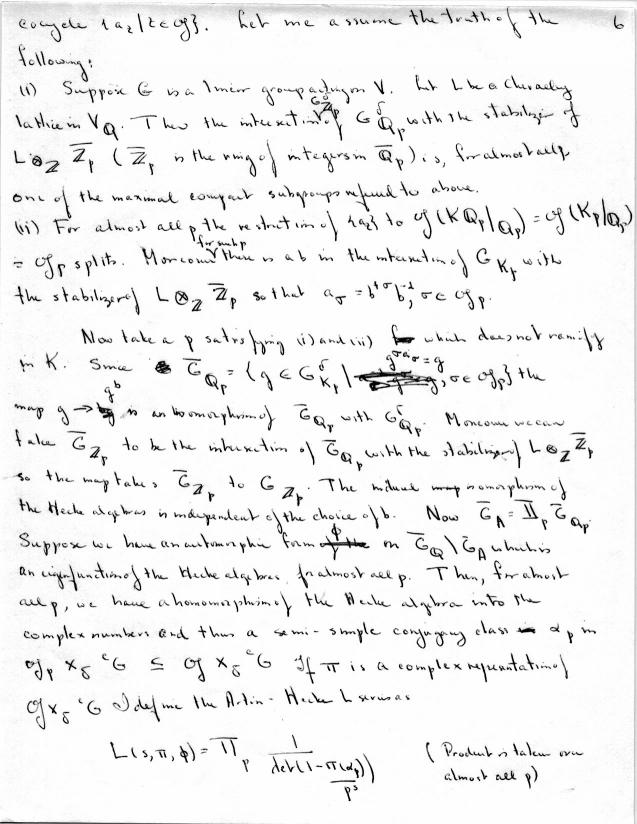 cocycle {a_τ | τ ∈ 𝔤}. Let me assume the truth of the 6
following:
(i) Suppose G is a linear group acting on V. Let L be a Chevalley
lattice in V_Q. Then the intersection G_{Z_p}^δ of G_{Q_p}^δ with the stabilizer of
L ⊗_Z \bar{Z}_p (\bar{Z}_p is the ring of integers in \bar{Q}_p) is, for almost all p
one of the maximal compact subgroups referred to above.
(ii) For almost all p the restriction of {a_σ} to 𝔤(KQ_p/Q_p) = 𝔤(K_p/Q_p)
= 𝔤_p splits. Moreover for such p there is a b in the intersection of G_{K_p} with
the stabilizer of L ⊗_Z \bar{Z}_p so that a_σ = b^{σ} b^{-1}, σ ∈ 𝔤_p.
Now take a p satisfying (i) and (ii) which does not ramify
in K. Since \bar{G}_{Q_p} = {g ∈ G_{K_p}^δ | g^{σ a_σ} = g, σ ∈ 𝔤_p} the
map g → g^b is an isomorphism of \bar{G}_{Q_p} with G_{Q_p}^δ. Moreover we can
take \bar{G}_{Z_p} to be the intersection of \bar{G}_{Q_p} with the stabilizer of L ⊗_Z \bar{Z}_p
so the map takes \bar{G}_{Z_p} to G_{Z_p}. The induced isomorphism of
the Hecke algebras is independent of the choice of b. Now \bar{G}_A = Π_p \bar{G}_{Q_p}.
Suppose we have an automorphic form φ on \bar{G}_Q \ \bar{G}_A which is
an eigenfunction of the Hecke algebras for almost all p. Then, for almost
all p, we have a homomorphism of the Hecke algebra into the
complex numbers and thus a semi-simple conjugacy class α_p in
𝔤_p ×_δ ^cG ⊆ 𝔤 ×_δ ^cG If π is a complex representation of
𝔤 ×_δ ^cG I define the Artin-Hecke L series as
L(s, π, φ) = Π_p 1 / det(1 - π(α_p)/p^s) (Product is taken over
almost all p)